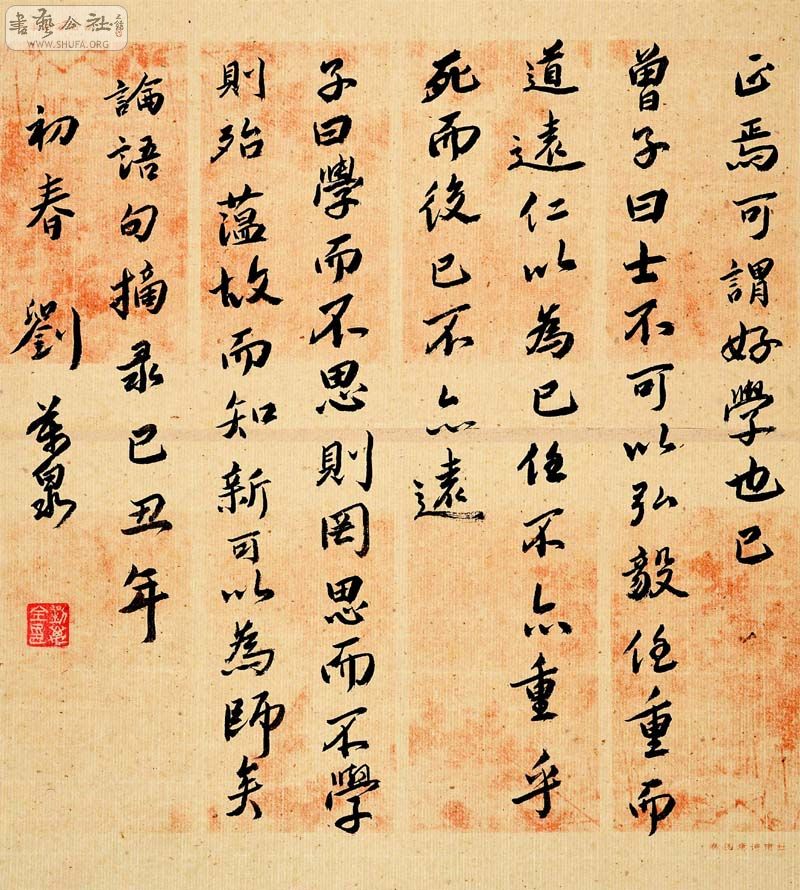 書藝公社
WWW.SHUFA.ORG
正焉可謂好學也已
曾子曰士不可以弘毅任重而
道遠仁以為己任不亦重乎
死而後已不亦遠
子曰學而不思則罔思而不學
則殆蕰故而知新可以為師矣
論語句摘录己丑年
初春 劉萬泉